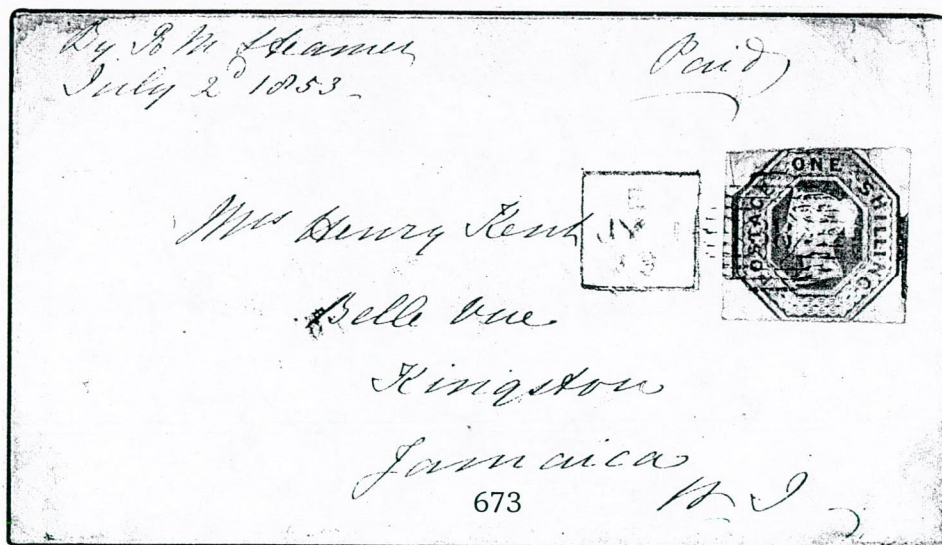 By R M Steamer
July 2d 1853
Paid
POSTAGE ONE SHILLING
Mrs Henry Kent
JY
Belle Vue
Kingston
Jamaica
W I
673